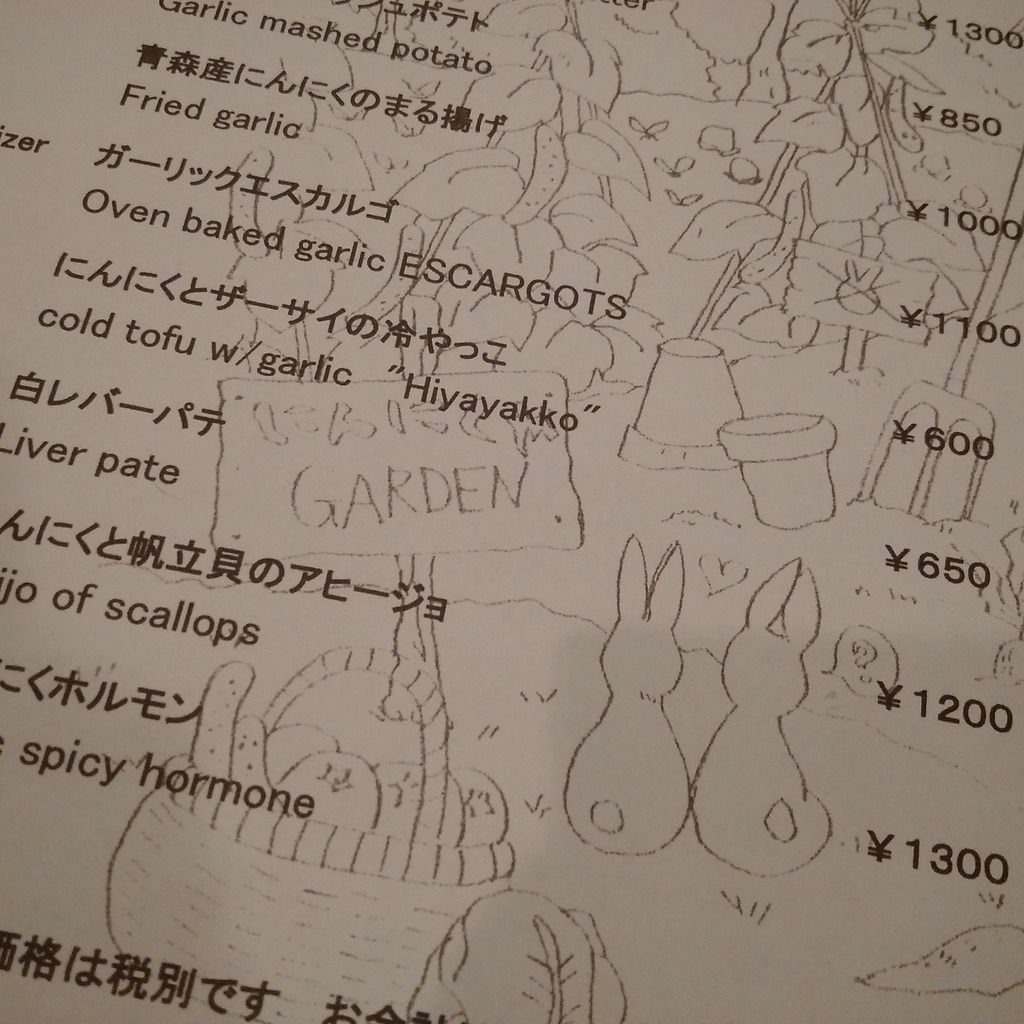 シュポテト
Garlic mashed potato
¥1300
青森産にんにくのまる揚げ
Fried garlic
¥850
izer
ガーリックエスカルゴ
Oven baked garlic ESCARGOTS
¥1000
にんにくとザーサイの冷やっこ
cold tofu w/garlic "Hiyayakko"
¥1100
白レバーパテ
Liver pate
¥600
にんにくにくにく
GARDEN
んにくと帆立貝のアヒージョ
ijo of scallops
¥650
?
にくホルモン
spicy hormone
¥1200
¥1300
価格は税別です お会計